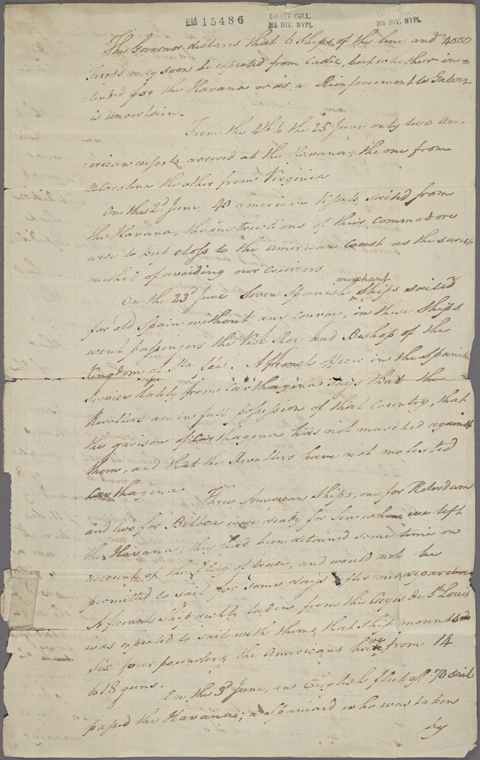 EM 15486
EMMET COLL.
MS DIV. NYPL
MS DIV. NYPL
The Governor declares that 6 Ships of the line and 4000
Troops may soon be expected from Cadiz, but whether in=
tended for the Havana or as a Reinforcement to Galvez
is uncertain.
From the 4th to the 25 June only two Am
erican vessels arrived at the Havana, the one from
the other from Virginia
On the 2d June 40 american vessels sailed from
the Havana, the instructions of their commodore
were to keep close to the American Coast as the surest
method of avoiding our cruisers
On the 23d June Seven Spanish merchant Ships sailed
for old Spain without any convoy, in these Ships
went passengers the Vice Roy and Bishop of the
Kingdom of Sta Fee. A french officer in the Spanish
Service lately from Carthagena says that the
Revolters are in full possession of that Country, that
the garison of Carthagena has not marched against
them, and that the Revolters have not molested
Carthagena Three American Ships, one for Roterdam
and two for Bilboa were ready for Sea when we left
the Havana, they had been detained some time on
account of the flag of truce, and would not be
permitted to sail for some days after
A french Ship richly laden from the Cape de St Louis
was expected to sail with them, that Ship mounted
Six four pounders, the Americans have from 14
to 18 guns.
On the 3d June, an English fleet of 70 sail
passed the Havana; a Spaniard who was taken
by